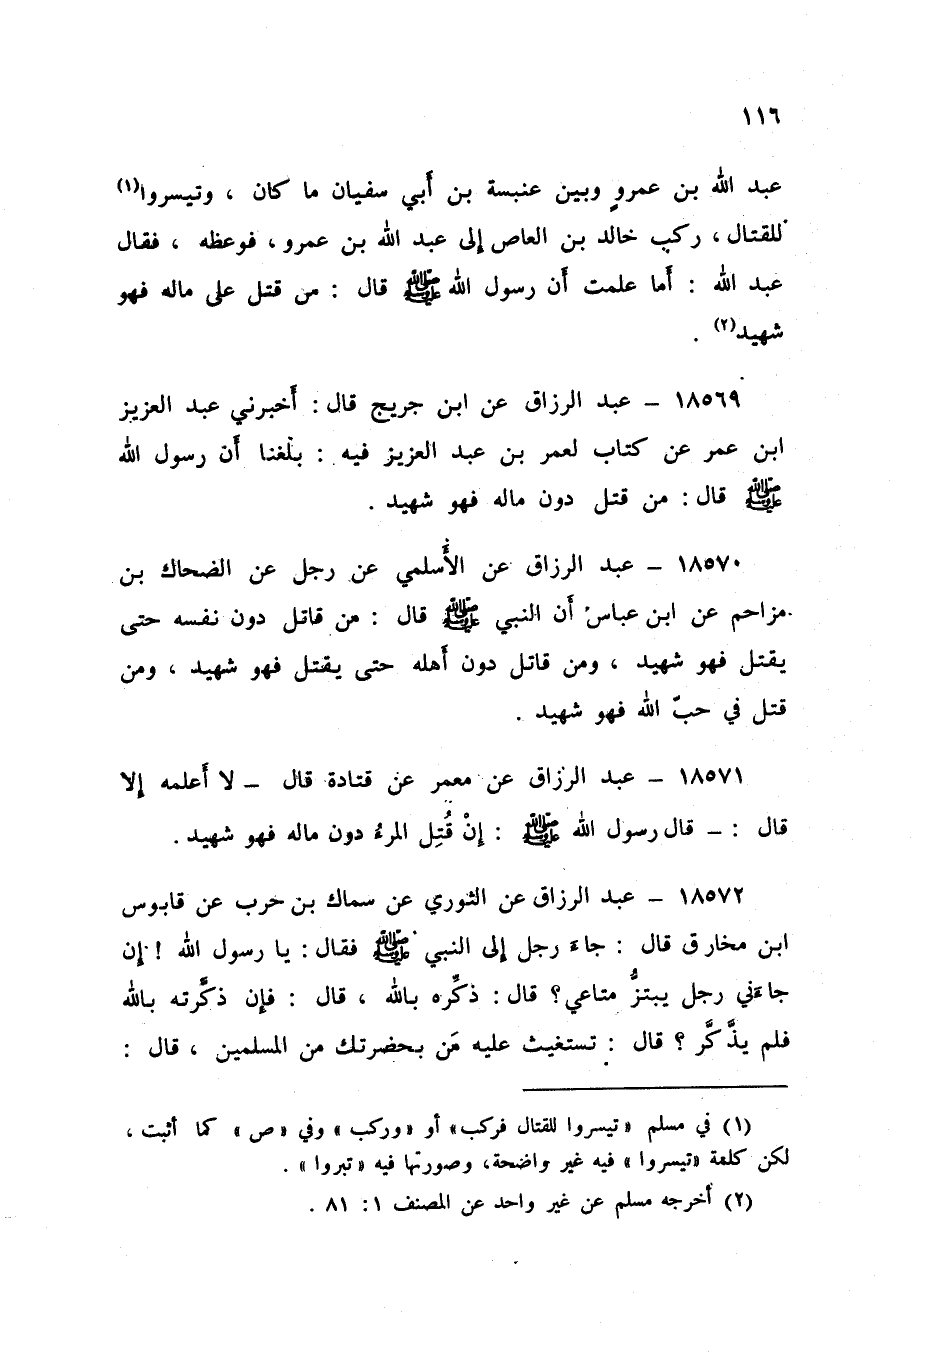 ١١٦
عبد الله بن عمرو وبين عنبسة بن أبي سفيان ما كان ، وتيسروا(١)
للقتال ، ركب خالد بن العاص إلى عبد الله بن عمرو ، فوعظه ، فقال
عبد الله : أما علمت أن رسول الله ﷺ قال : من قتل على ماله فهو
شهيد(٢) .
١٨٥٦٩ – عبد الرزاق عن ابن جريج قال : أخبرني عبد العزيز
ابن عمر عن كتاب لعمر بن عبد العزيز فيه : بلغنا أن رسول الله
ﷺ قال : من قتل دون ماله فهو شهيد .
١٨٥٧٠ – عبد الرزاق عن الأسلمي عن رجل عن الضحاك بن
مزاحم عن ابن عباس أن النبي ﷺ قال : من قاتل دون نفسه حتى
يقتل فهو شهيد ، ومن قاتل دون أهله حتى يقتل فهو شهيد ، ومن
قتل في حبّ الله فهو شهيد .
١٨٥٧١ – عبد الرزاق عن معمر عن قتادة قال – لا أعلمه إلا
قال : – قال رسول الله ﷺ : إنْ قُتِل المرءُ دون ماله فهو شهيد .
١٨٥٧٢ – عبد الرزاق عن الثوري عن سماك بن حرب عن قابوس
ابن مخارق قال : جاء رجل إلى النبي ﷺ فقال : يا رسول الله ! إن
جاءني رجل يبتزُّ متاعي؟ قال : ذكِّره بالله ، قال : فإن ذكَّرته بالله
فلم يذَّكَّر ؟ قال : تستغيث عليه مَن بحضرتك من المسلمين ، قال :
(١) في مسلم «تيسروا للقتال فركب» أو «وركب» وفي «ص» كما أثبت ،
لكن كلمة «تيسروا» فيه غير واضحة، وصورتها فيه «تبروا» .
(٢) أخرجه مسلم عن غير واحد عن المصنف ١ : ٨١ .